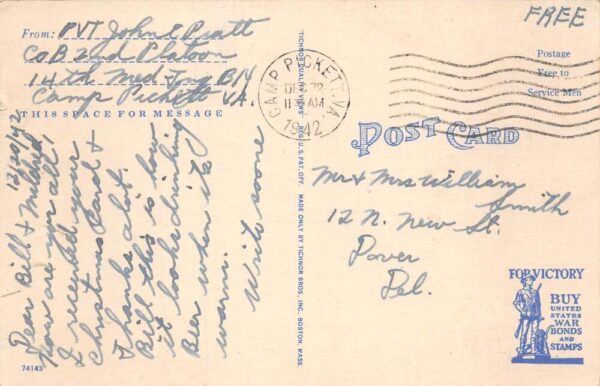 From: PVT John E Pratt
Co B 2nd Platoon
14th Med Tng B/N
Camp Pickett VA.
THIS SPACE FOR MESSAGE
12/20/42
Dear Bill & Mildred
How are yr all!
I receited your
christmas Card &
thanks alit.
Bill this is how
it looks drinking
Beer when its
warm.
Write soone
74143
TICHNOR QUALITY VIEWS REG. U. S. PAT. OFF. MADE ONLY BY TICHNOR BROS., INC., BOSTON, MASS.
CAMP PICKETT, VA.
DEC 22
11 AM
1942
FREE
Postage
Free to
Service Men
POST CARD
Mr & Mrs William
Smith
12 N. New St.
Dover
Del.
FOR VICTORY
BUY
UNITED
STATES
WAR
BONDS
AND
STAMPS